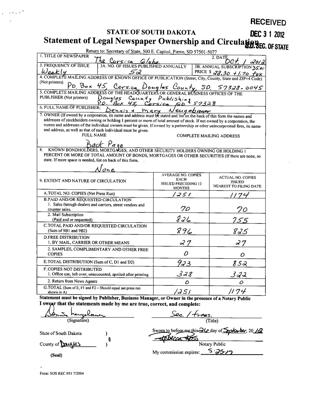 RECEIVED
DEC 31 2012
S.D. SEC. OF STATE
STATE OF SOUTH DAKOTA
Statement of Legal Newspaper Ownership and Circulation
Return to: Secretary of State, 500 E. Capitol, Pierre, SD 57501-5077
1. TITLE OF NEWSPAPER
The Corsica Globe
2. DATE
Oct 1 2012
3. FREQUENCY OF ISSUE
Weekly
3A. NO. OF ISSUES PUBLISHED ANNUALLY
52
3B. ANNUAL SUBSCRIPTION
PRICE $ 28.30 + 1.70 tax
4. COMPLETE MAILING ADDRESS OF KNOWN OFFICE OF PUBLICATION (Street, City, County, State and ZIP+4 Code)
(Not printers)
PO Box 45 Corsica Douglas County SD 57328-0045
5. COMPLETE MAILING ADDRESS OF THE HEADQUARTERS OR GENERAL BUSINESS OFFICES OF THE
PUBLISHER (Not printers)
Douglas County Publishing
P.O. Box 45, Corsica SD 57328
6. FULL NAME OF PUBLISHER:
Dennis & Mary
7. OWNER (If owned by a corporation, its name and address must be stated and also on the back of this form the names and
addresses of stockholders owning or holding 1 percent or more of total amount of stock. If not owned by a corporation, the
names and addresses of the individual owners must be given. If owned by a partnership or other unincorporated firm, its name
and address, as well as that of each individual must be given.
FULL NAME
COMPLETE MAILING ADDRESS
Back Page
8. KNOWN BONDHOLDERS, MORTGAGEES, AND OTHER SECURITY HOLDERS OWNING OR HOLDING 1
PERCENT OR MORE OF TOTAL AMOUNT OF BONDS, MORTGAGES OR OTHER SECURITIES (If there are none, so
state. If more space is needed, list on back of this form.
None
9. EXTENT AND NATURE OF CIRCULATION
AVERAGE NO. COPIES
EACH
ISSUED PRECEDING 12
MONTHS
ACTUAL NO. COPIES
ISSUED
NEAREST TO FILING DATE
A. TOTAL NO. COPIES (Net Press Run)
1251
1174
B. PAID AND/OR REQUESTED CIRCULATION
1. Sales through dealers and carriers, street vendors and
counter sales.
70
70
2. Mail Subscription
(Paid and or requested)
826
755
C. TOTAL PAID AND/OR REQUESTED CIRCULATION
(Sum of 9B1 and 9B2)
896
825
D. FREE DISTRIBUTION
1. BY MAIL, CARRIER OR OTHER MEANS
27
27
2. SAMPLES, COMPLIMENTARY AND OTHER FREE
COPIES
0
0
E. TOTAL DISTRIBUTION (Sum of C, D1 and D2)
923
852
F. COPIES NOT DISTRIBUTED
1. Office use, left over, unaccounted, spoiled after printing
328
322
2. Return from News Agents
0
0
G. TOTAL (Sum of E, F1 and F2 - Should equal net press run
shown in A)
1251
1174
Statement must be signed by Publisher, Business Manager, or Owner in the presence of a Notary Public
I swear that the statements made by me are true, correct, and complete:
(Signature)
(Title)
State of South Dakota )
§
County of Douglas )
(Seal)
Sworn to before me this day of September, 2012
Notary Public
My commission expires:
Form: SOS REC 051 7/2004